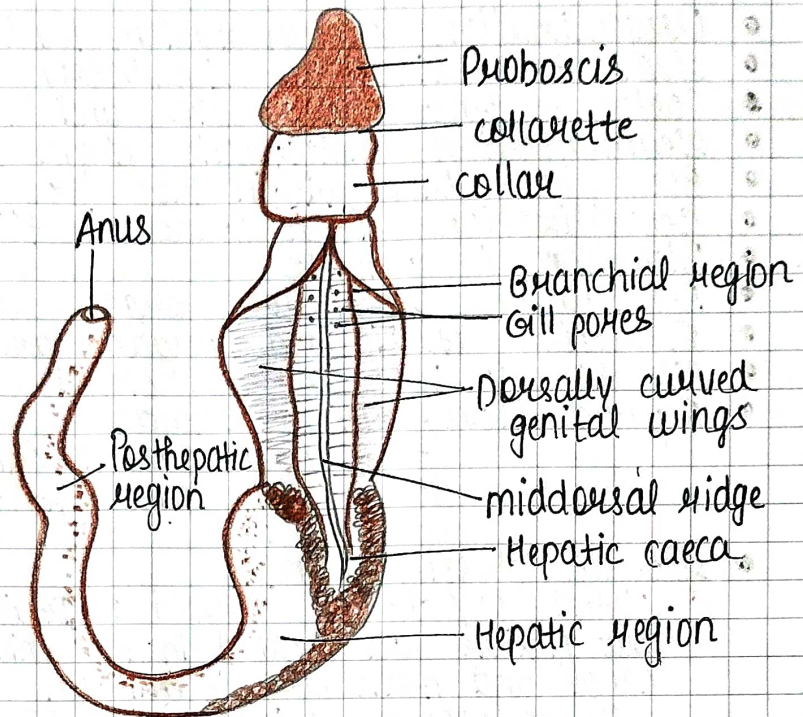 Proboscis
collarette
collar
Anus
Branchial region
Gill pores
Dorsally curved
genital wings
Posthepatic
region
middorsal ridge
Hepatic caeca
Hepatic region